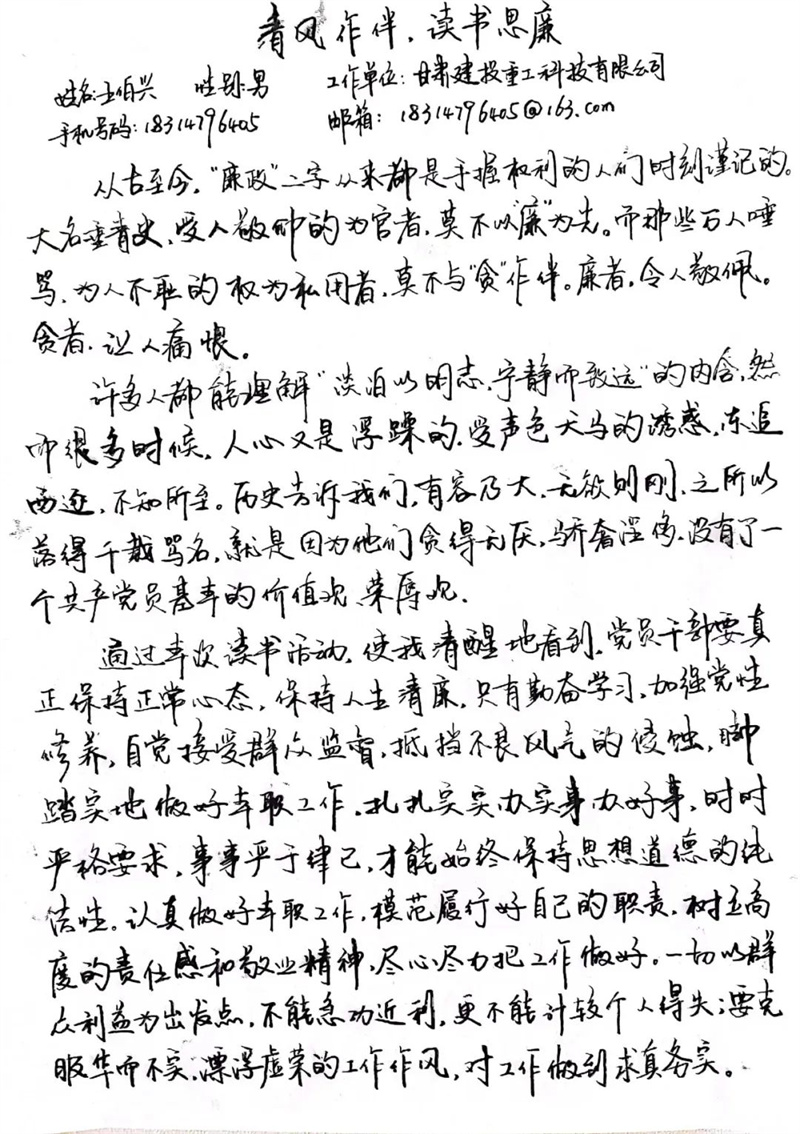 清风作伴，读书思廉
姓名：王伯兴 性别：男 工作单位：甘肃建投重工科技有限公司
手机号码：18314796405 邮箱：18314796405@163.com
从古至今，“廉政”二字从来都是手握权利的人们时刻谨记的。
大名垂青史，受人敬仰的为官者，莫不以“廉”为先。而那些万人唾
骂，为人不耻的权为私用者，莫不与“贪”作伴。廉者，令人敬佩。
贪者，让人痛恨。
许多人都能理解“淡泊以明志，宁静而致远”的内含，然
而很多时候，人心又是浮躁的，受声色犬马的诱惑，东追
西逐，不知所至。历史告诉我们，有容乃大，无欲则刚，之所以
落得千载骂名，就是因为他们贪得无厌，骄奢淫侈，没有了一
个共产党员基本的价值观、荣辱观。
通过本次读书活动，使我清醒地看到，党员干部要真
正保持正常心态，保持人生清廉，只有勤奋学习，加强党性
修养，自觉接受群众监督，抵挡不良风气的侵蚀，脚
踏实地做好本职工作，扎扎实实办实事办好事，时时
严格要求，事事严于律己，才能始终保持思想道德的纯
洁性。认真做好本职工作，模范履行好自己的职责，树立高
度的责任感和敬业精神，尽心尽力把工作做好。一切以群
众利益为出发点，不能急功近利，更不能计较个人得失；要克
服华而不实，漂浮虚荣的工作作风，对工作做到求真务实。